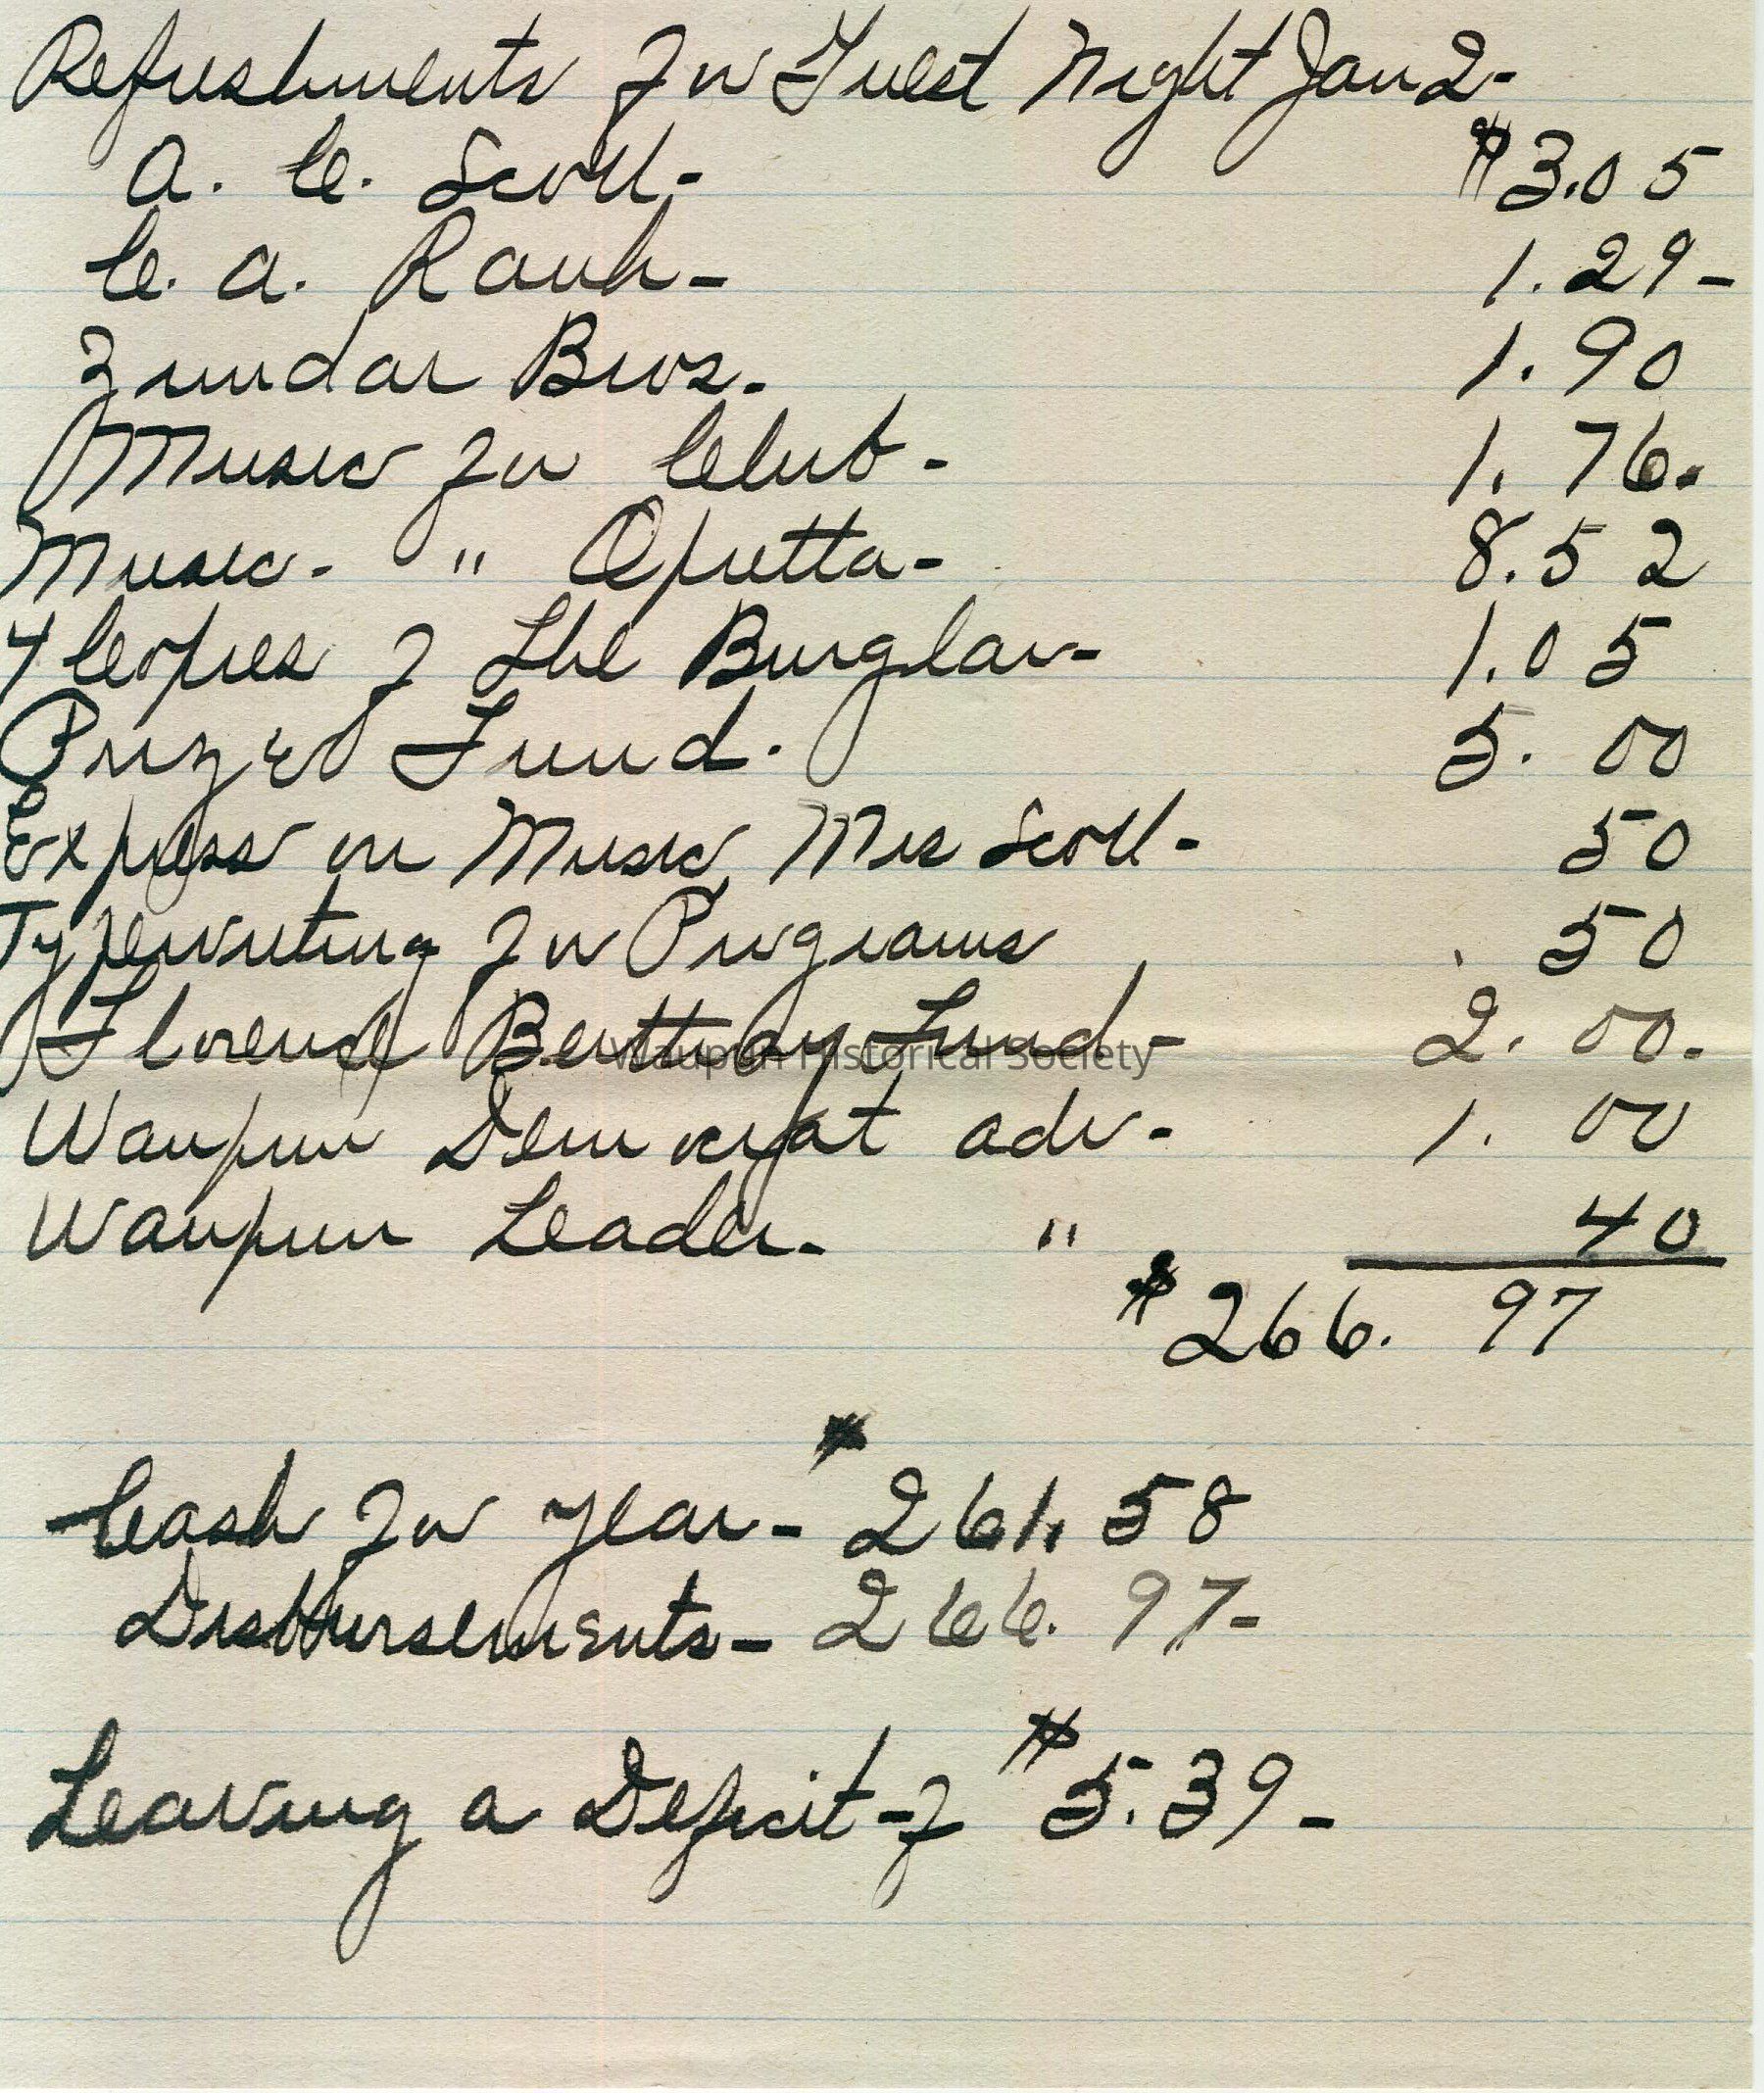 Refreshments for Guest Night Jan 2-
A. C. Scott- $3.05
C. A. Rank- 1.29-
Zundar Bros. 1.90
Music for Club- 1.76.
Music- " Opretta- 8.52
4 Copies of The Burglar- 1.05
Prize Fund. 5.00
Express on Music, Mrs Scott- 50
Typewriting for Programs .50
Florence Fund- 2.00.
Waupun Historical Society
Waupun Democrat adv- 1.00
Waupun Leader. " 40
$266.97
Cash for year- $261.58
Disbursements- 266.97-
Leaving a Deficit-of $5.39-